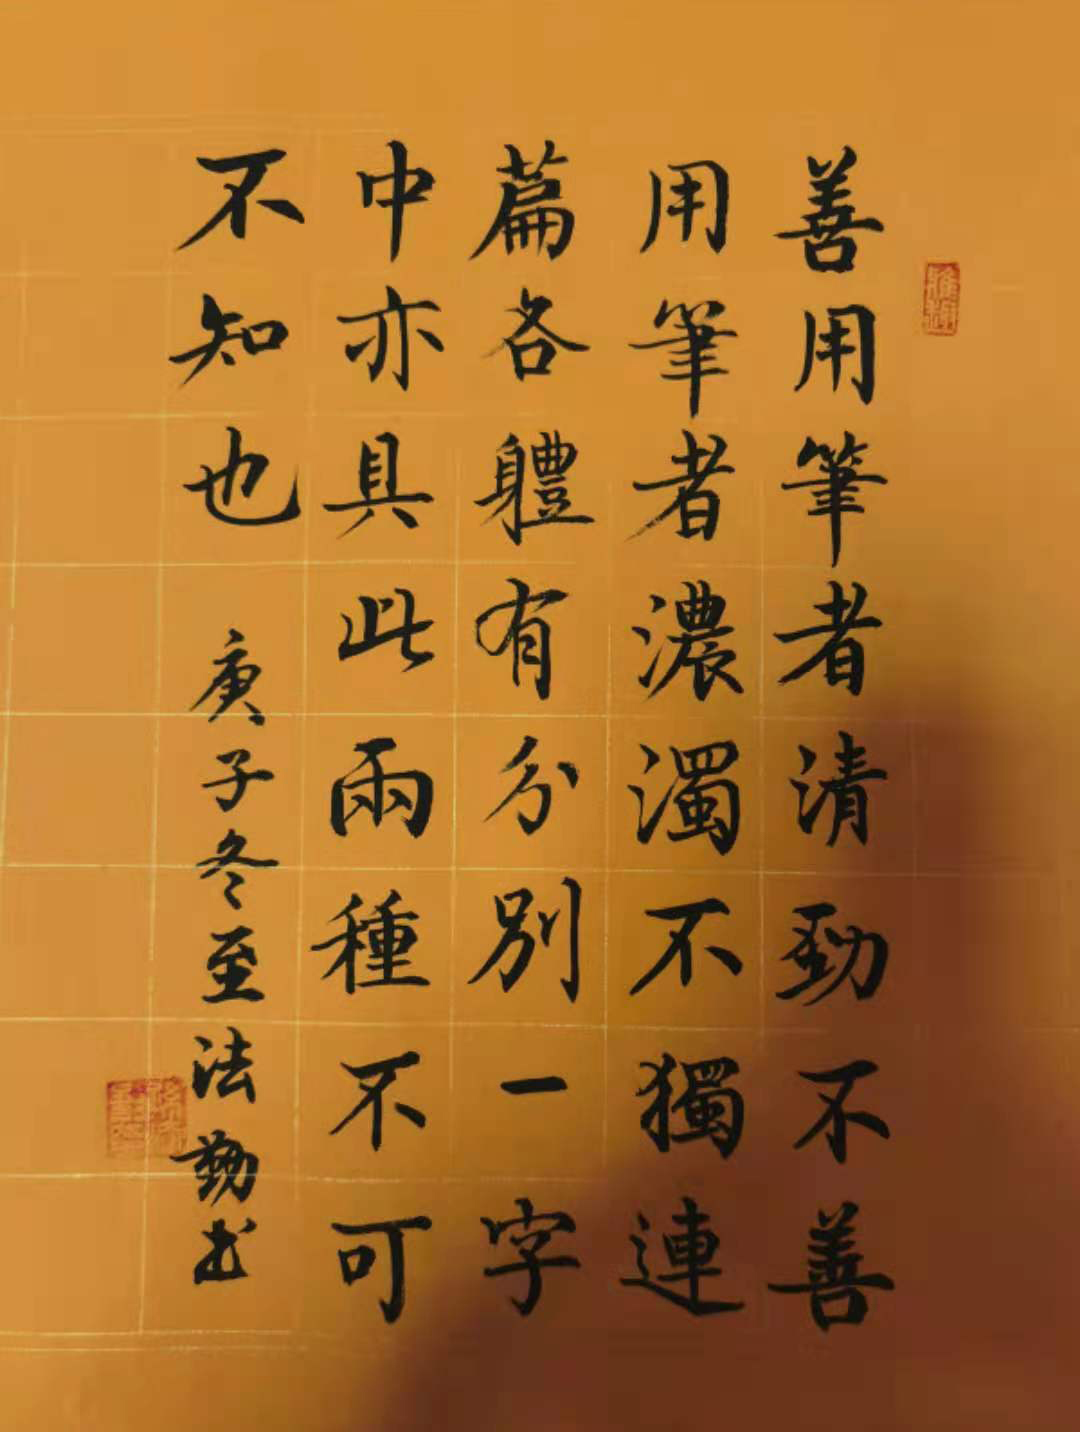 善用筆者清勁不善
用筆者濃濁不獨連
篇各體有分別一字
中亦具此兩種不可
不知也
庚子冬至法勤书